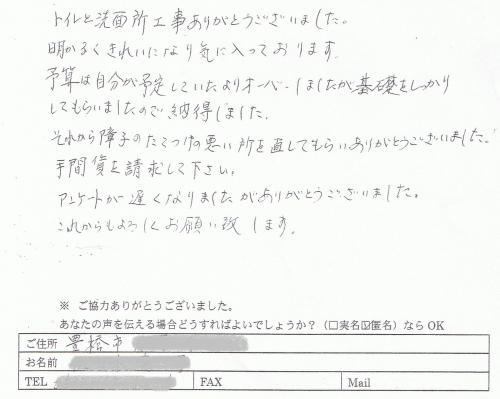 トイレと洗面所工事ありがとうございました。
明かるくきれいになり気に入っております。
予算は自分が予定していたよりオーバーしましたが基礎をしっかり
してもらいましたので納得しました。
それから障子のたてつけの悪い所を直してもらいありがとうございました。
手間賃を請求して下さい。
アンケートが遅くなりましたがありがとうございました。
これからもよろしくお願い致します。
※ ご協力ありがとうございました。
あなたの声を伝える場合どうすればよいでしょうか？（□実名☑匿名）ならOK
ご住所 豊橋市
お名前
TEL FAX Mail